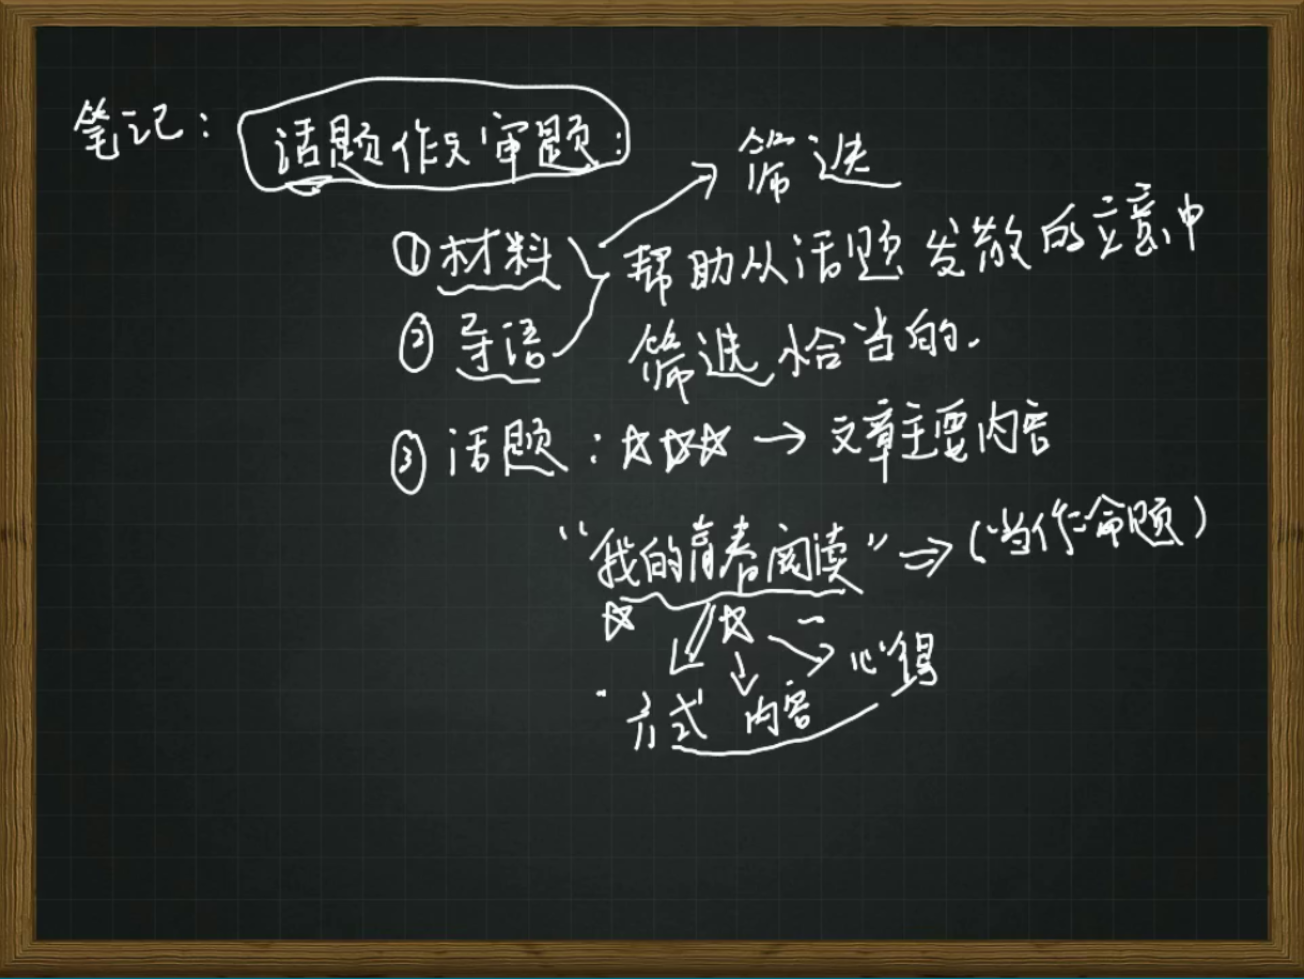 笔记：话题作文审题：
筛选
①材料
帮助从话题发散的立意中
②导语
筛选恰当的.
③话题：☆☆☆→文章主要内容
“我的青春阅读”⇒(当作命题)
☆ ☆
心得
方式 内容